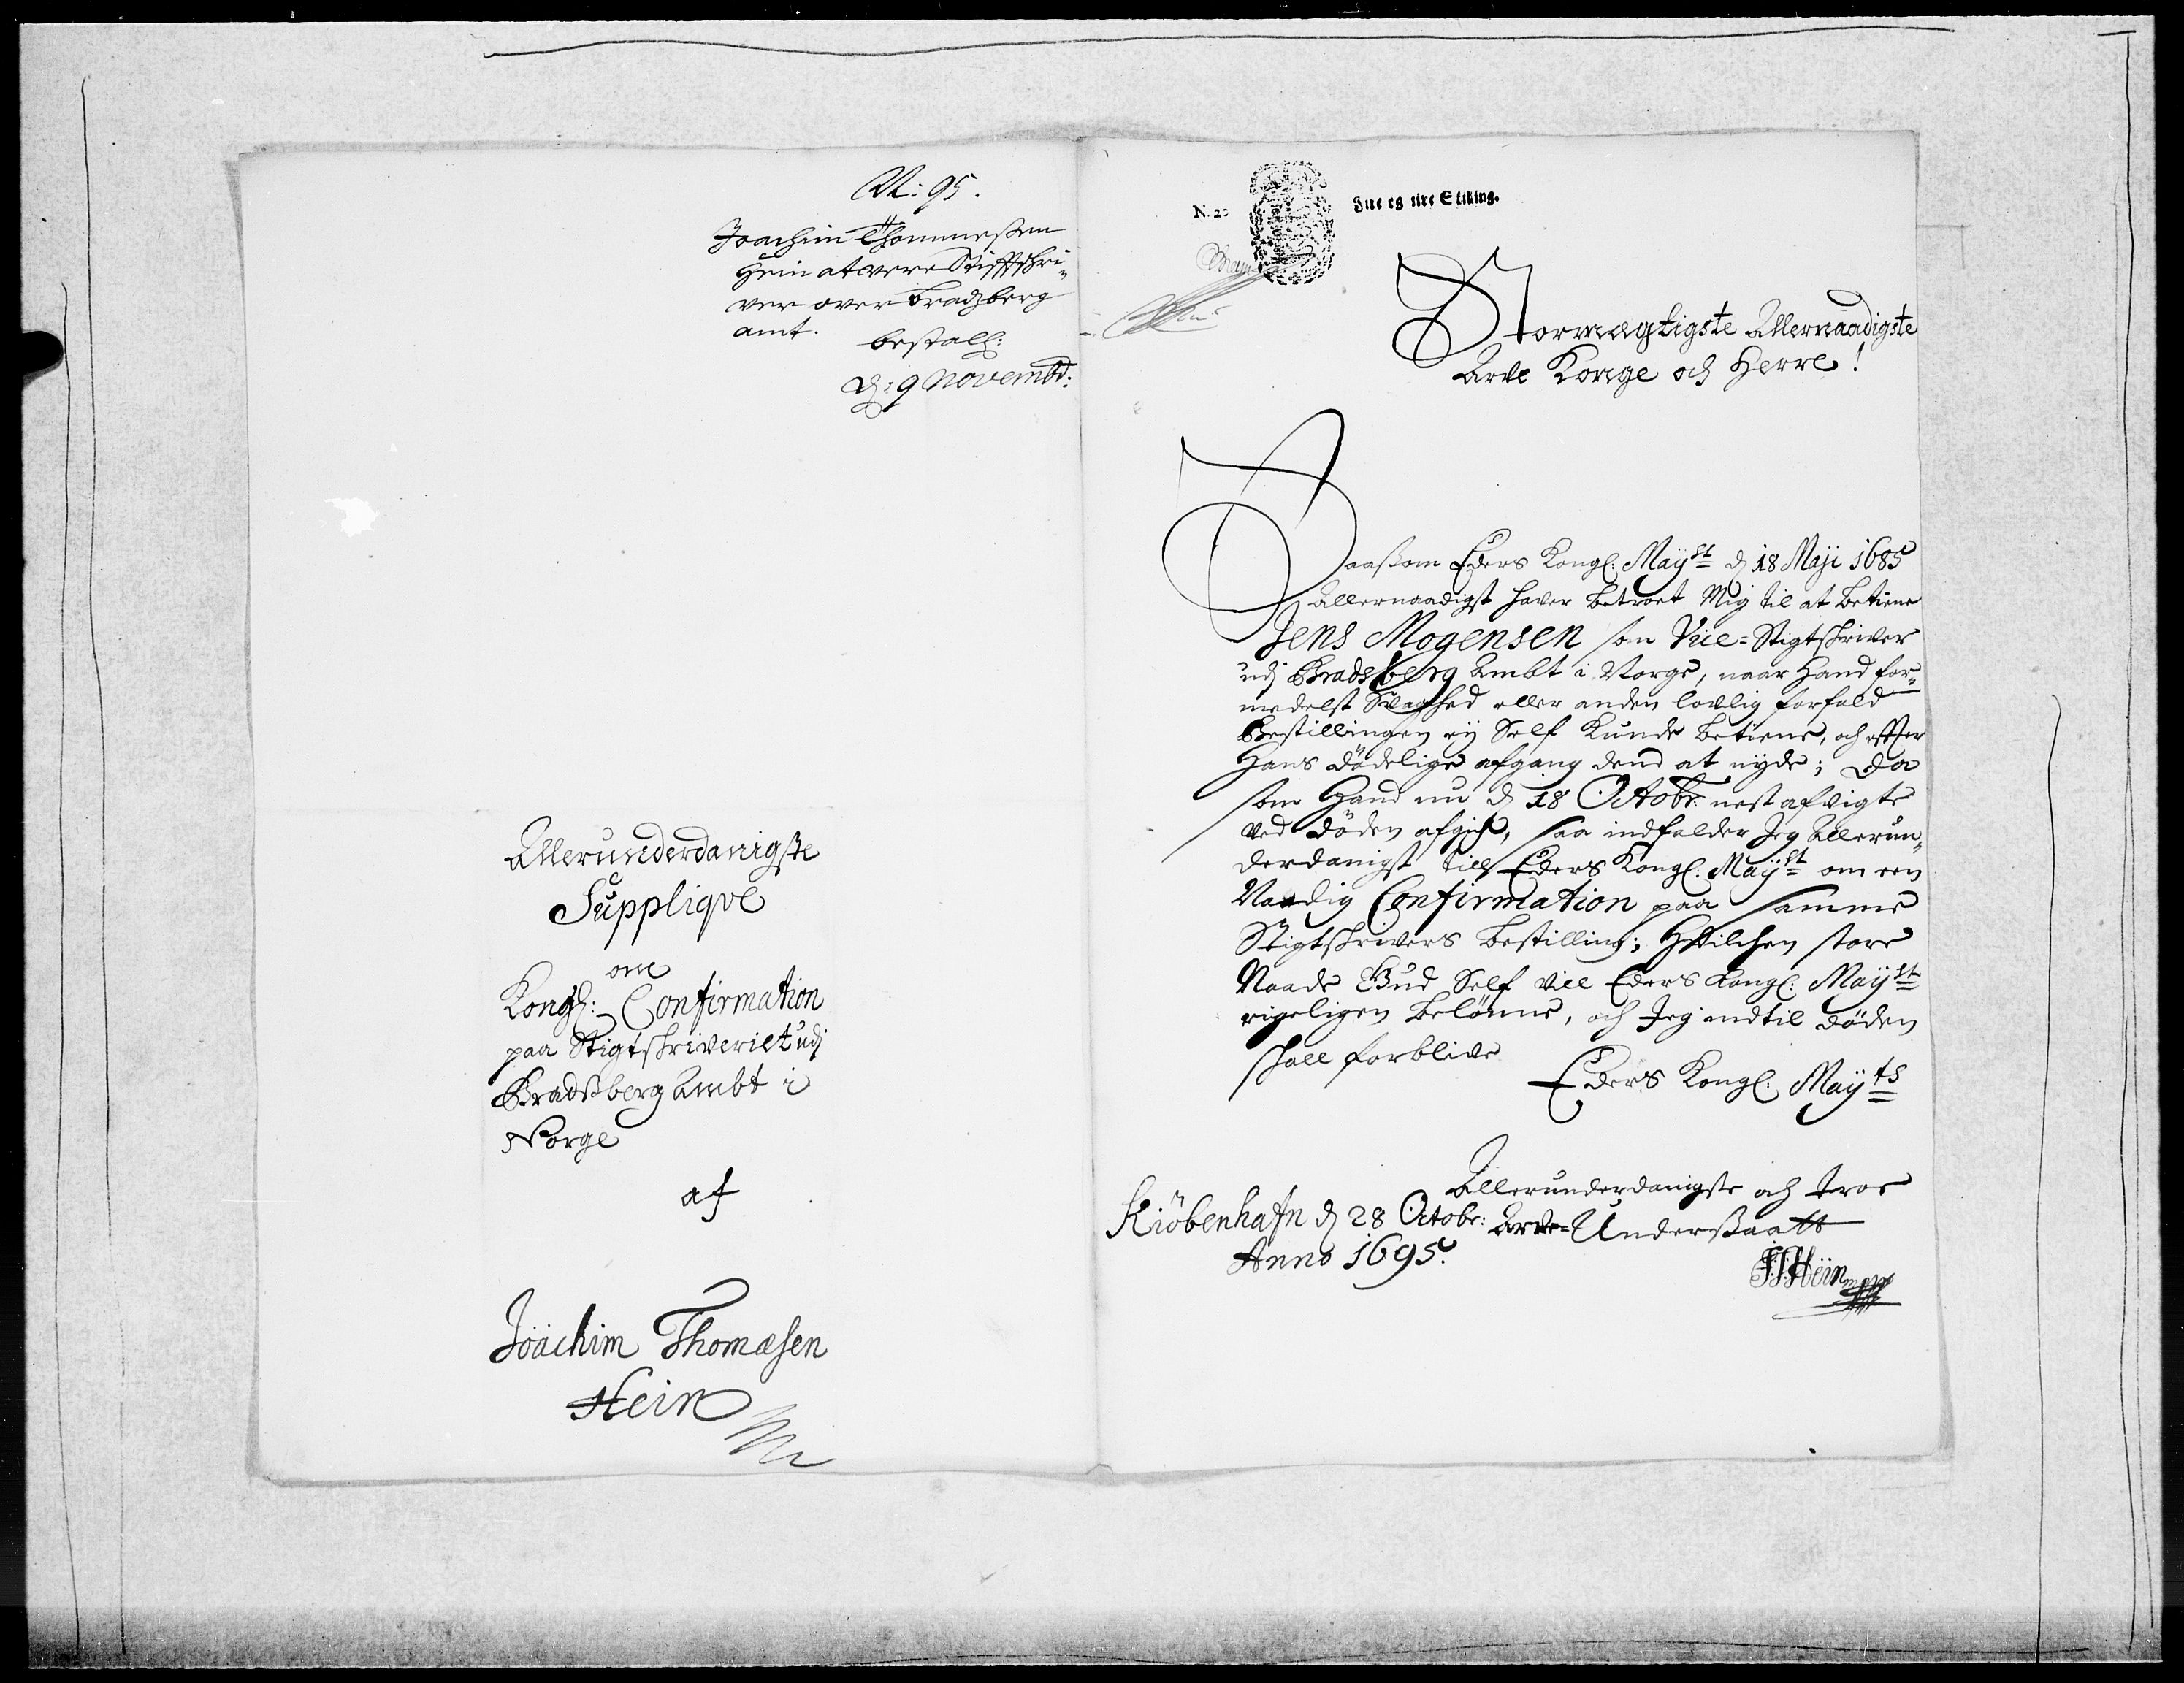 N: 95.
Joachim Thommesen
Hein at være Stifftschri-
ver over Bradzberg
amt.
bestall:
d: 9 Novembr:
Allerunderdanigste
Supplique
om
Kongl: Confirmation
paa Stigtskriveriet udj
Bradsberg Ambt i
Norge
af
Jöachim Thomæsen
Hein
N. 20
Fire og tive Skilling.
Stormægtigste Allernaadigste
Arve Konge och Herre!
Saasom Eders Kongl: Mayst d 18 Maji 1685
Allernaadigst hafver betroet Mig til at betiene
Jens Mogensen som Vice-Stigtskriver
udj Bradsberg Ambt i Norge, naar Hand for-
medelst Svaghed eller anden lovlig forfald
Bestillingen ej Self kunde betiene, och effter
Hans dødelige afgang dend at nyde; Da
som Hand nu d 18 Octobr: nest afvigte
ved døden afgich, saa indfalder Jeg allerun-
derdanigst till Eders Kongl: Mayst om een
Naadig Confirmation paa samme
Stigtskrivers bestilling; Hvilchen store
Naade Gud Self vill Eders Kongl: Mayst
rigeligen belønne, och Jeg indtil døden
skall forblive
Eders Kongl: Mayts
Allerunderdanigste och troe
Kiöbenhafn d 28 Octobr: Arve-Undersaatt
Anno 1695.
JTHein